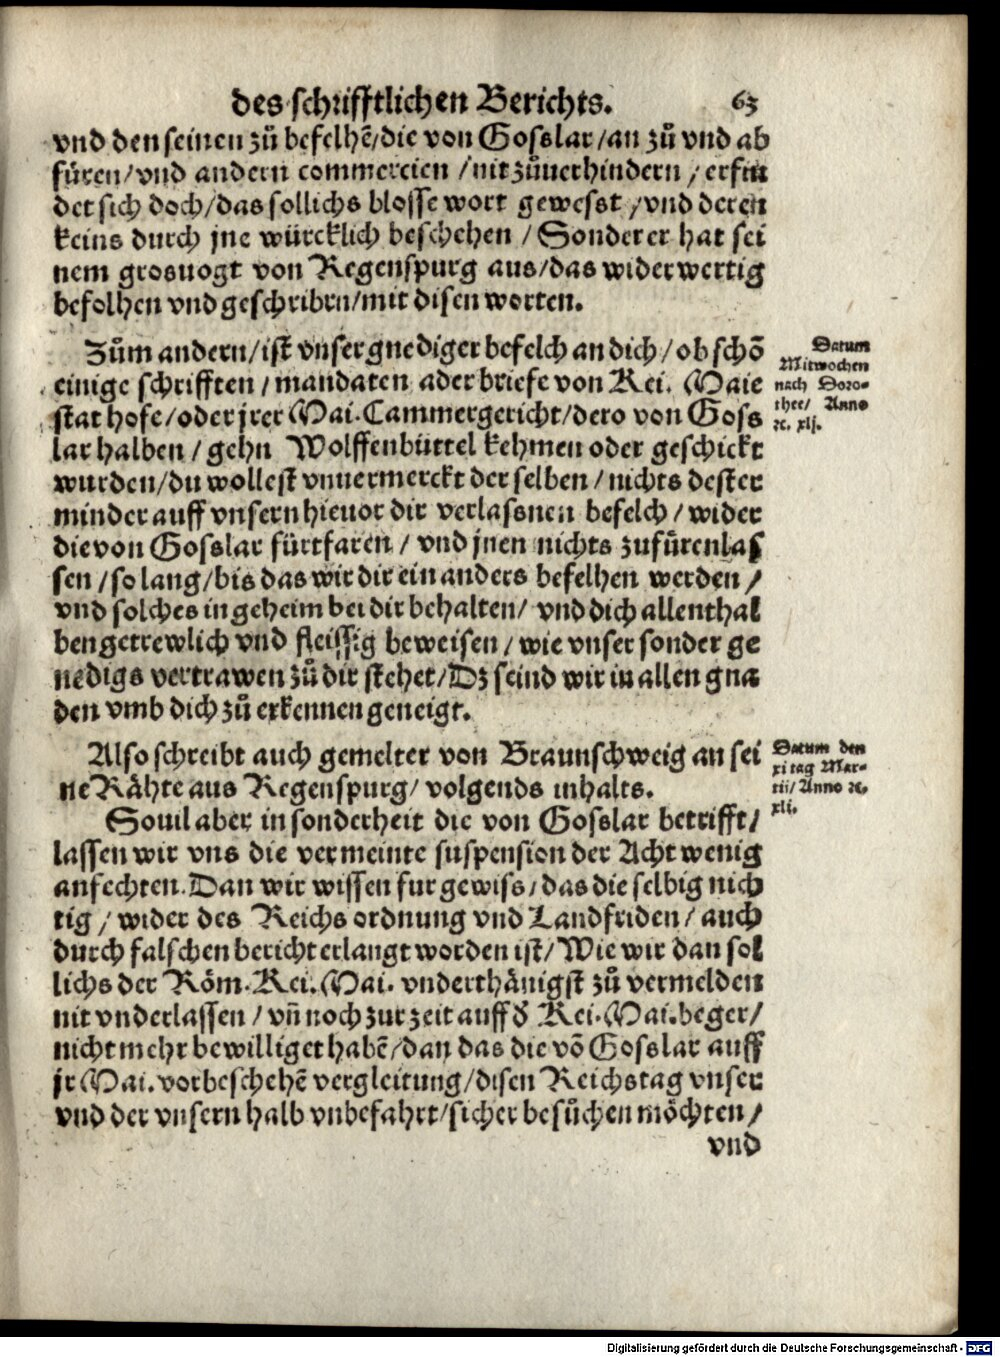 des schrifftlichen Berichts. 63
vnd den seinen zů befelhẽ/die von Gosslar/an zů vnd ab
fůren/vnd andern commercien/nit zůuerhindern/erfin
det sich doch/das sollichs blosse wort gewesst/vnd deren
keins durch jne würcklich beschehen/Sonder er hat sei
nem grosuogt von Regenspurg aus/das widerwertig
befolhen vnd geschribrn/mit disen worten.
Zům andern/ist vnser gnediger befelch an dich/ob schõ
einige schrifften/mandaten ader briefe von Kei. Maie
stat hofe/oder jrer Mai. Cammergericht/dero von Goss
lar halben/gehn Wolffenbüttel kehmen oder geschickt
wurden/du wollest vnuermerckt derselben/nichts dester
minder auff vnsern hieuor dir verlassnen befelch/wider
die von Gosslar fürtfaren/vnd jnen nichts zufůren las
sen/so lang/bis das wir dir ein anders befelhen werden/
vnd solches in geheim bei dir behalten/vnd dich allenthal
ben getrewlich vnd fleissig beweisen/wie vnser sonder ge
nedigs vertrawen zů dir stehet/Dz seind wir in allen gna
den vmb dich zů erkennen geneigt.
Datum
Mitwochen
nach Doro-
thee/ Anno
ꝛc. xlj.
Also schreibt auch gemelter von Braunschweig an sei
ne Rähte aus Regenspurg/volgends inhalts.
Souil aber in sonderheit die von Gosslar betrifft/
lassen wir vns die vermeinte suspension der Acht wenig
anfechten. Dan wir wissen fur gewiss/das die selbig nich
tig/wider des Reichs ordnung vnd Landfriden/auch
durch falschen bericht erlangt worden ist/Wie wir dan sol
lichs der Röm. Kei. Mai. vnderthänigst zů vermelden
nit vnderlassen/vñ noch zur zeit auff d̕ Kei. Mai. beger/
nicht mehr bewilliget habẽ/dan das die võ Gosslar auff
jr Mai. vorbeschehẽ vergleitung/disen Reichstag vnser
vnd der vnsern halb vnbefahrt/sicher besůchen möchten/
Datum den
xi tag Mar-
tii/Anno ꝛc.
xli.
vnd
Digitalisierung gefördert durch die Deutsche Forschungsgemeinschaft - DFG